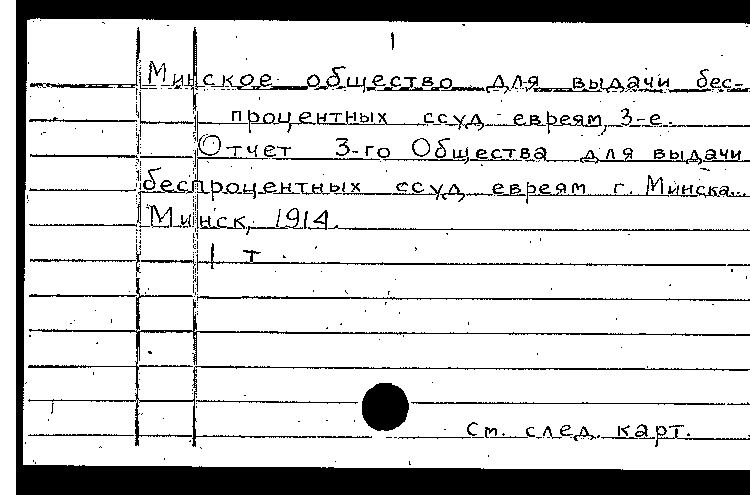 Минское общество для выдачи бес-
процентных ссуд евреям, 3-е.
Отчет 3-го Общества для выдачи
беспроцентных ссуд евреям г. Минска...
Минск, 1914.
1 т.
См. след. карт.